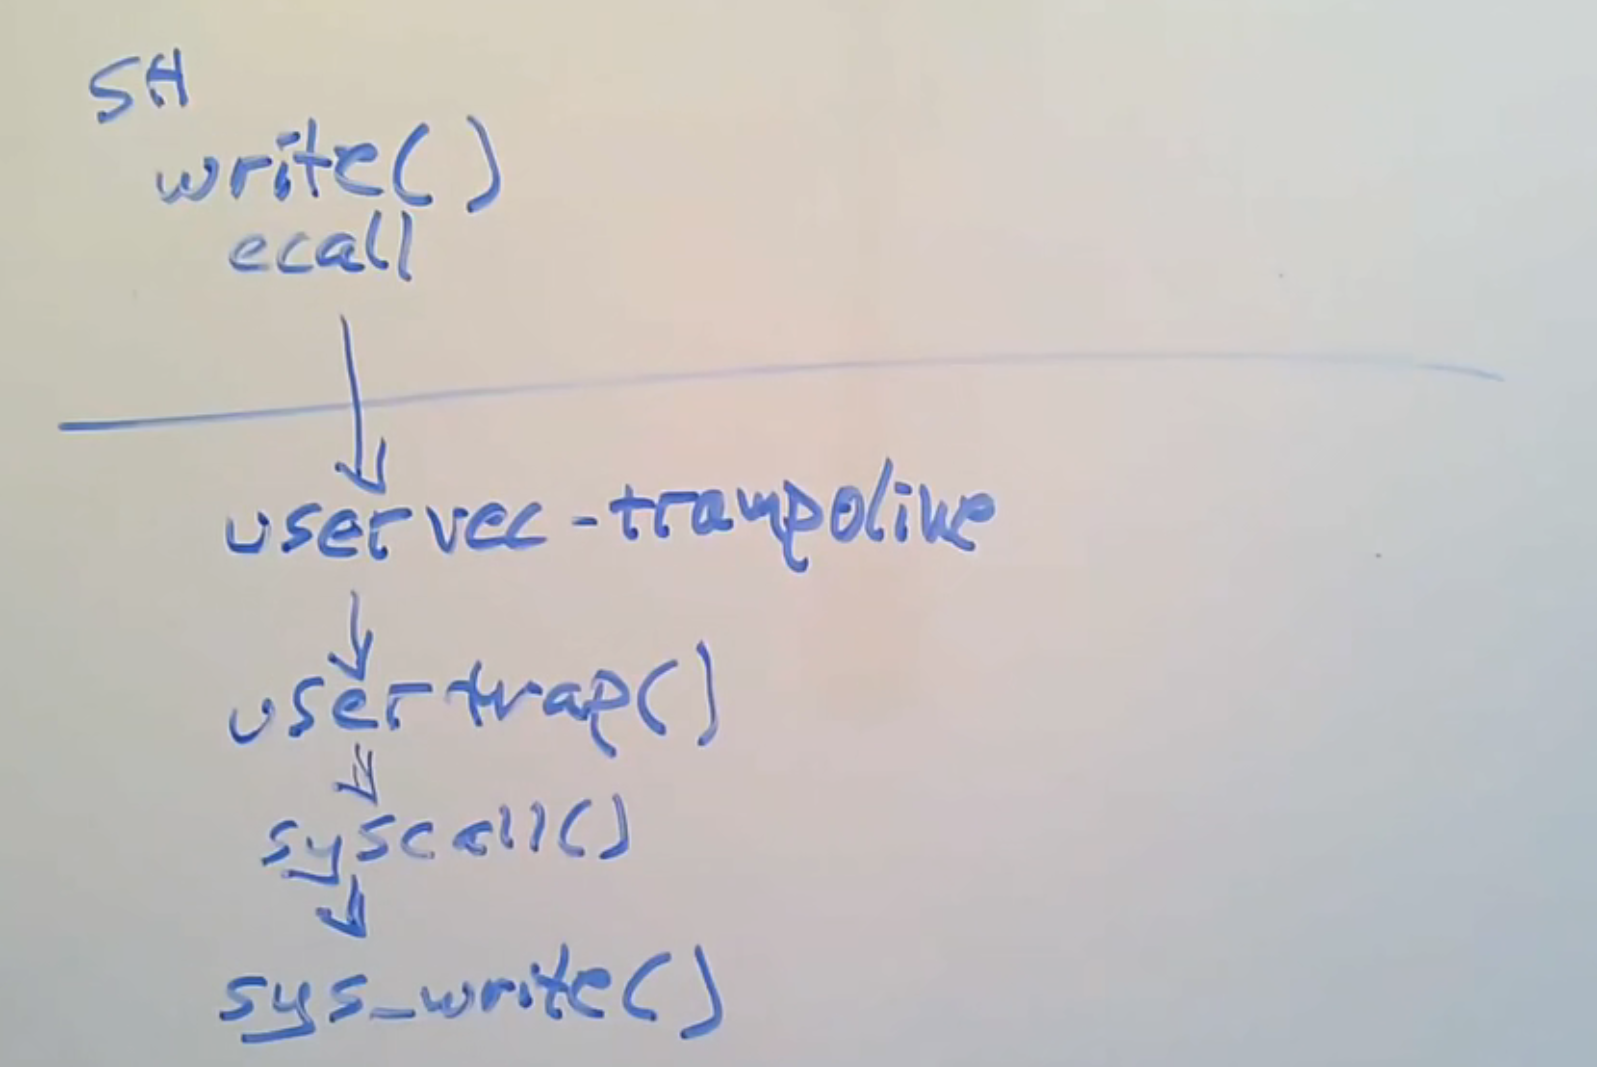 SH
write()
ecall
uservec - trampoline
usertrap()
syscall()
sys_write()